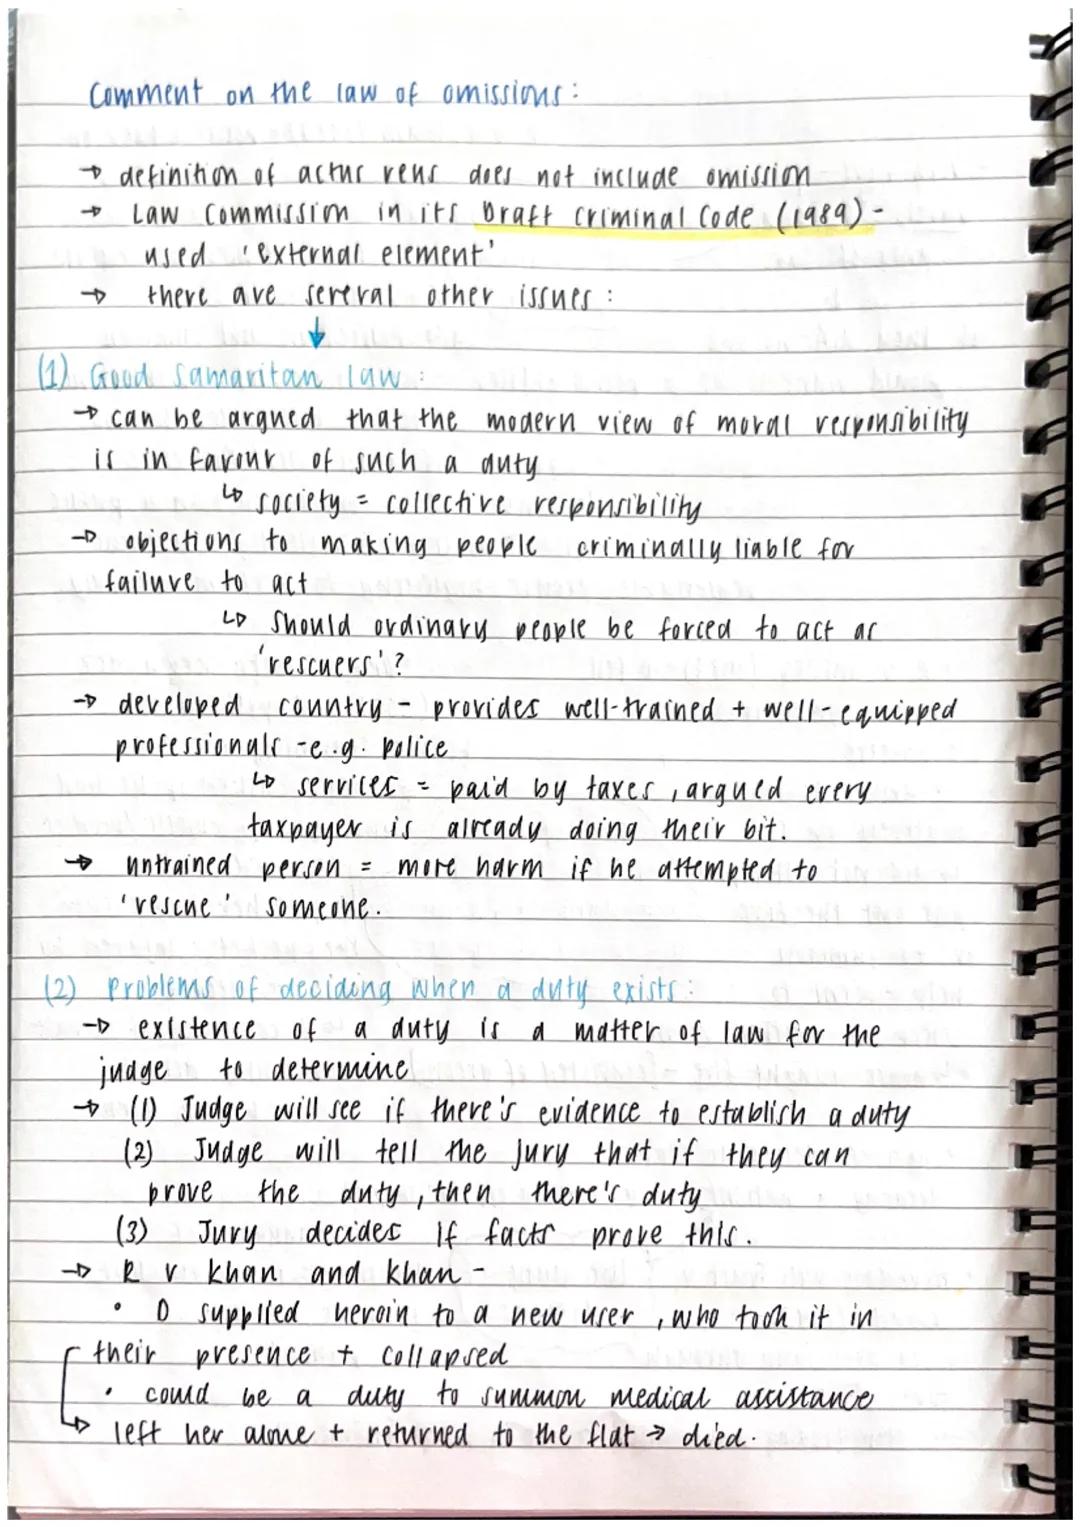 Comment on the law of omissions:
→ definition of actus reus does not include omission
→ Law Commission in its Draft Criminal Code (1989) -
used 'external element'
→ there are several other issues:
↓
(1) Good Samaritan law:
→ can be argued that the modern view of moral responsibility
is in favour of such a duty
↳ society = collective responsibility
→ objections to making people criminally liable for
failure to act
↳ Should ordinary people be forced to act as
'rescuers'?
→ developed country - provides well-trained + well-equipped
professionals - e.g. police
↳ services = paid by taxes, argued every
taxpayer is already doing their bit.
→ untrained person = more harm if he attempted to
'rescue' someone.
(2) Problems of deciding when a duty exists:
→ existence of a duty is a matter of law for the
judge to determine
→ (1) Judge will see if there's evidence to establish a duty
(2) Judge will tell the jury that if they can
prove the duty, then there's duty
(3) Jury decides if facts prove this.
→ R v Khan and Khan -
• D supplied heroin to a new user, who took it in
their presence + collapsed
• could be a duty to summon medical assistance
→ left her alone + returned to the flat → died.